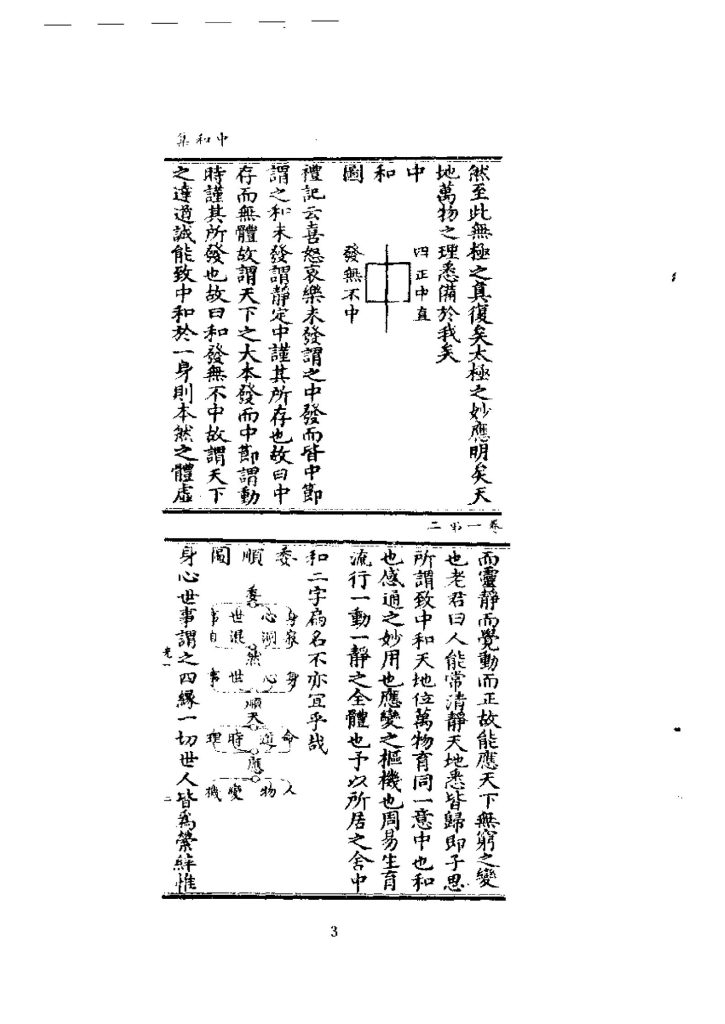 中和集
然至此無極之真復矣太極之妙應明矣天
地萬物之理悉備於我矣
中和圖
四正中直
發無不中
禮記云喜怒哀樂未發謂之中發而皆中節
謂之和未發謂靜定中謹其所存也故曰中
存而無體故謂天下之大本發而中節謂動
時謹其所發也故曰和發無不中故謂天下
之達道誠能致中和於一身則本然之體虛
卷一第二
而靈靜而覺動而正故能應天下無窮之變
也老君曰人能常清靜天地悉皆歸即子思
所謂致中和天地位萬物育同一意中也和
也感通之妙用也應變之樞機也周易生育
流行一動一靜之全體也予以所居之舍中
和二字扁名不亦宜乎哉
委順圖
委
身心世事
寂洞混自
然
身心世事
順
天
命道時理
應
人物變機
身心世事謂之四緣一切世人皆為縈絆惟
二
3